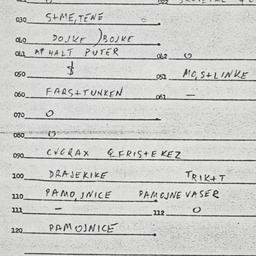 030 S+ME, TENE
040 DOJKE ) BOJKE
041 APHALT PUTER 042 O
050 $ 051 MC, S+LINKE
060 FARS+TUNKEN 061 —
070 O
080 O
090 CVGRAX & FRIS+EKEZ
100 DRAJEKIKE TRIK+T
110 PAMO, JNICE PAMOJNE VASER
111 — 112 O
120 PAMOJNICE